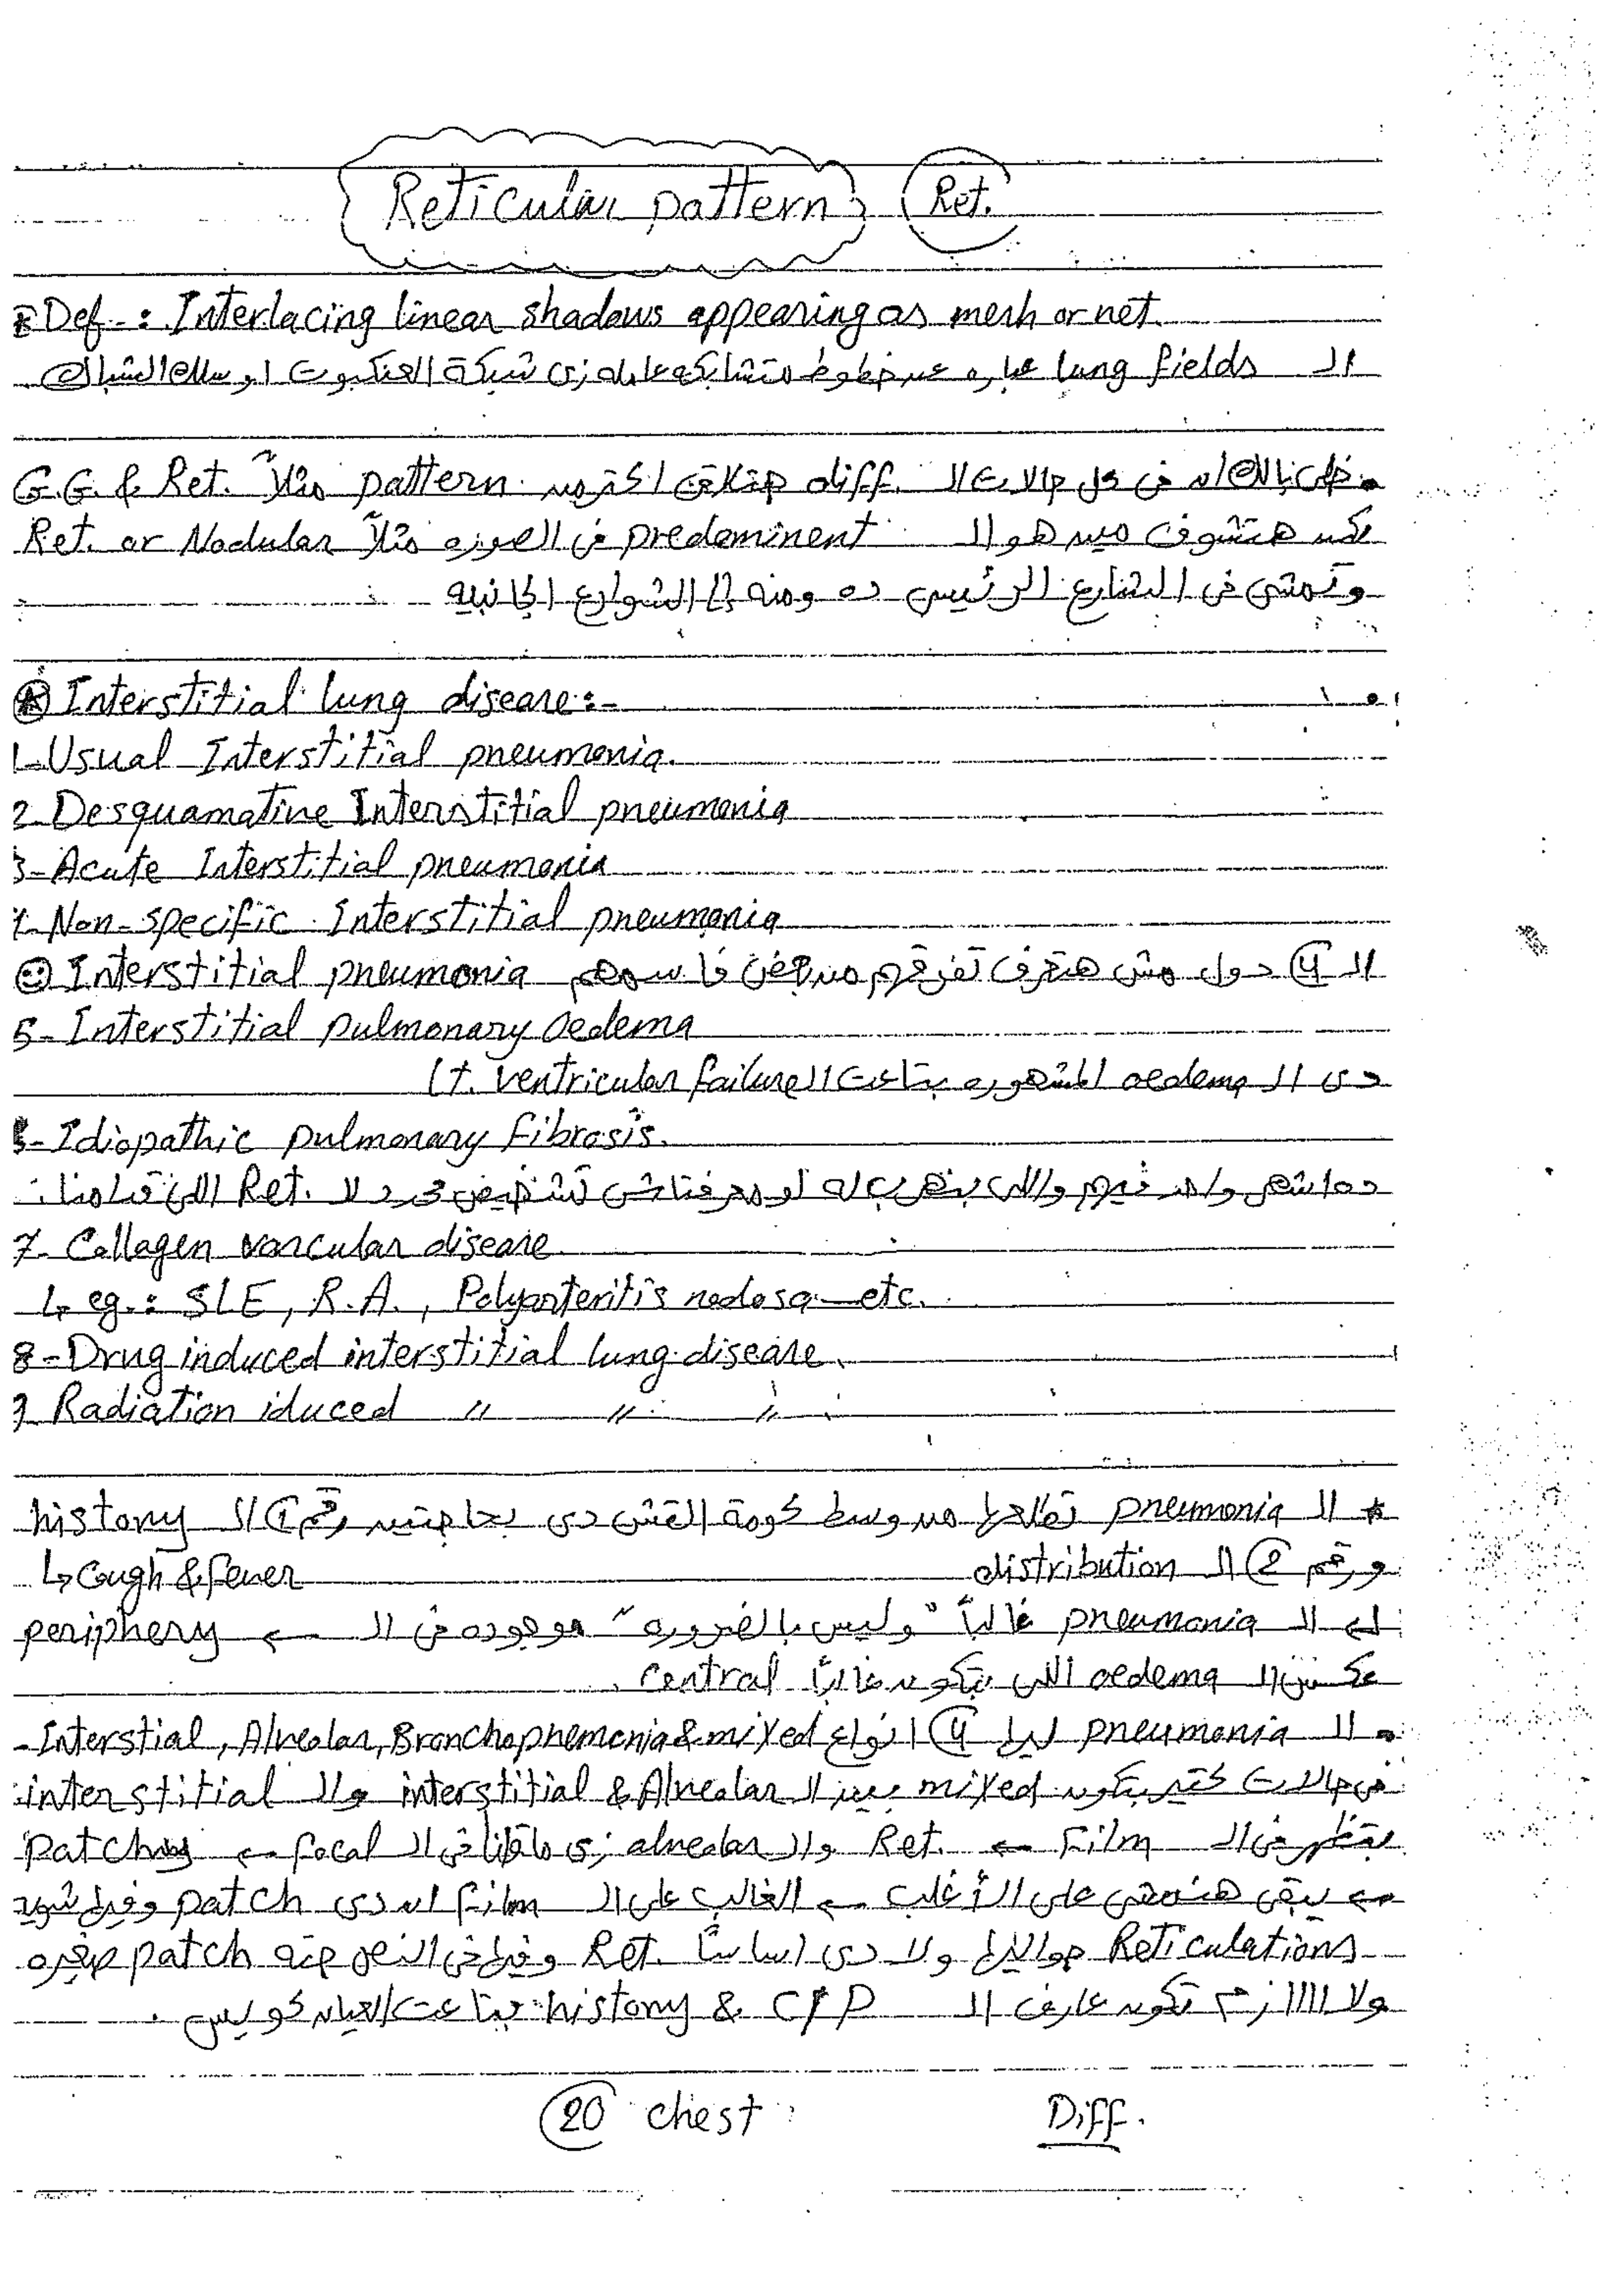 Reticular pattern Ret.
Def-: Interlacing linear shadows appearing as mesh or net.
الـ lung fields عباره عن خطوط متشابكه عامله زى شبكة العنكبوت او سلك الشباك
خلى بالك ان فى كل حالات الـ diff. هتلاقى اكتر من pattern مثلاً G.G. & Ret.
لكن هتشوف مين هو الـ predominent فى الصوره مثلاً Ret. or Nodular
وتمشى فى الشارع الرئيسى ده ومنه إلى الشوارع الجانبيه
Interstitial lung disease:-
1-Usual Interstitial pneumonia.
2-Desquamative Interstitial pneumonia
3-Acute Interstitial pneumonia
4-Non-specific Interstitial pneumonia
الـ 4 دول مش هتعرف تفرقهم من بعض فا سمهم Interstitial pneumonia
5-Interstitial pulmonary oedema
دى الـ oedema المشهوره بتاعت الـ lt. ventricular failure
6-Idiopathic pulmonary fibrosis.
ده اشهر واحد فيهم واللى بنهرب له لو معرفناش تشخيص محدد لا Ret. اللى قدامنا
7-Collagen vascular disease
↳ eg.: SLE, R.A., Polyarteritis nodosa - etc.
8-Drug induced interstitial lung disease.
9-Radiation iduced " " "
* الـ pneumonia تطلعها من وسط كومة القش دى بحاجتين رقم 1 الـ history
↳ Cough & fever
و رقم 2 الـ distribution
الـ pneumonia غالباً "وليس بالضروره" موجوده فى الـ ← periphery
عكس الـ oedema اللى بتكون غالباً central.
الـ pneumonia ليها 4 انواع Interstial, Alveolar, Bronchopnemonia & mixed
فى حالات كتير بتكون mixed بين الـ interstitial & Alveolar والـ interstitial
بتظهر فى الـ Film ← Ret. والـ alveolar زى ما قلنا فى الـ focal ← patchy
← يبقى هنمشى على الأغلب ← الغالب على الـ film ان دى patch وفيها شوية
Reticulations حواليها ولا دى اساساً Ret. وفيها فى النص حته patch صغيره
ولا اااازم تكون عارف الـ history & C/P بتاعت العيان كويس.
20 chest Diff.